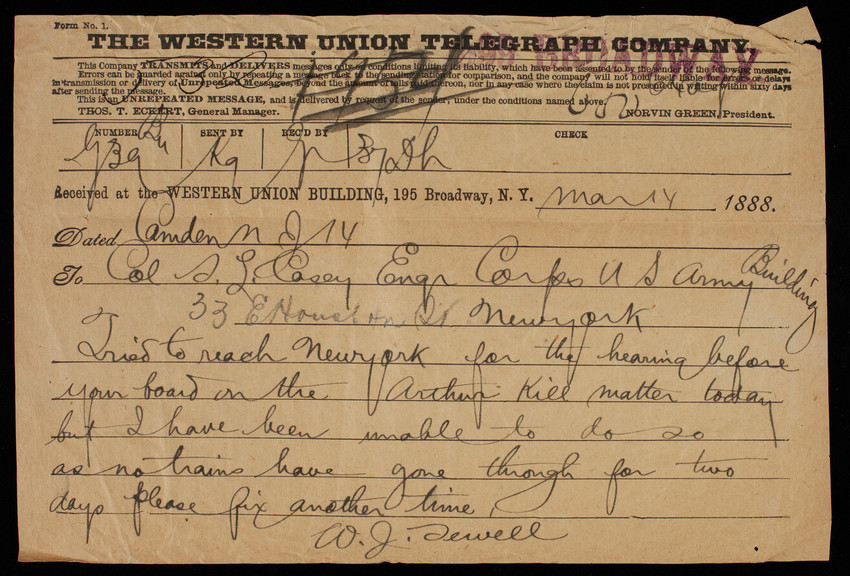 Form No. 1.
THE WESTERN UNION TELEGRAPH COMPANY.
This Company TRANSMITS and DELIVERS messages only on conditions limiting its liability, which have been assented to by the sender of the following message.
Errors can be guarded against only by repeating a message back to the sending station for comparison, and the company will not hold itself liable for errors or delays
in transmission or delivery of Unrepeated Messages, beyond the amount of tolls paid thereon, nor in any case where the claim is not presented in writing within sixty days
after sending the message.
This is an UNREPEATED MESSAGE, and is delivered by request of the sender, under the conditions named above.
THOS. T. ECKERT, General Manager. NORVIN GREEN, President.
NUMBER SENT BY REC'D BY CHECK
Received at the WESTERN UNION BUILDING, 195 Broadway, N. Y. Mar 14 1888.
Dated Camden N J 14
To Col S. L. Casey Engr Corps U S Army Building
33 E Houston St New york
Tried to reach New york for the hearing before
your board on the Arthur Kill matter today
but I have been unable to do so
as no trains have gone through for two
days Please fix another time.
W. J. Sewell